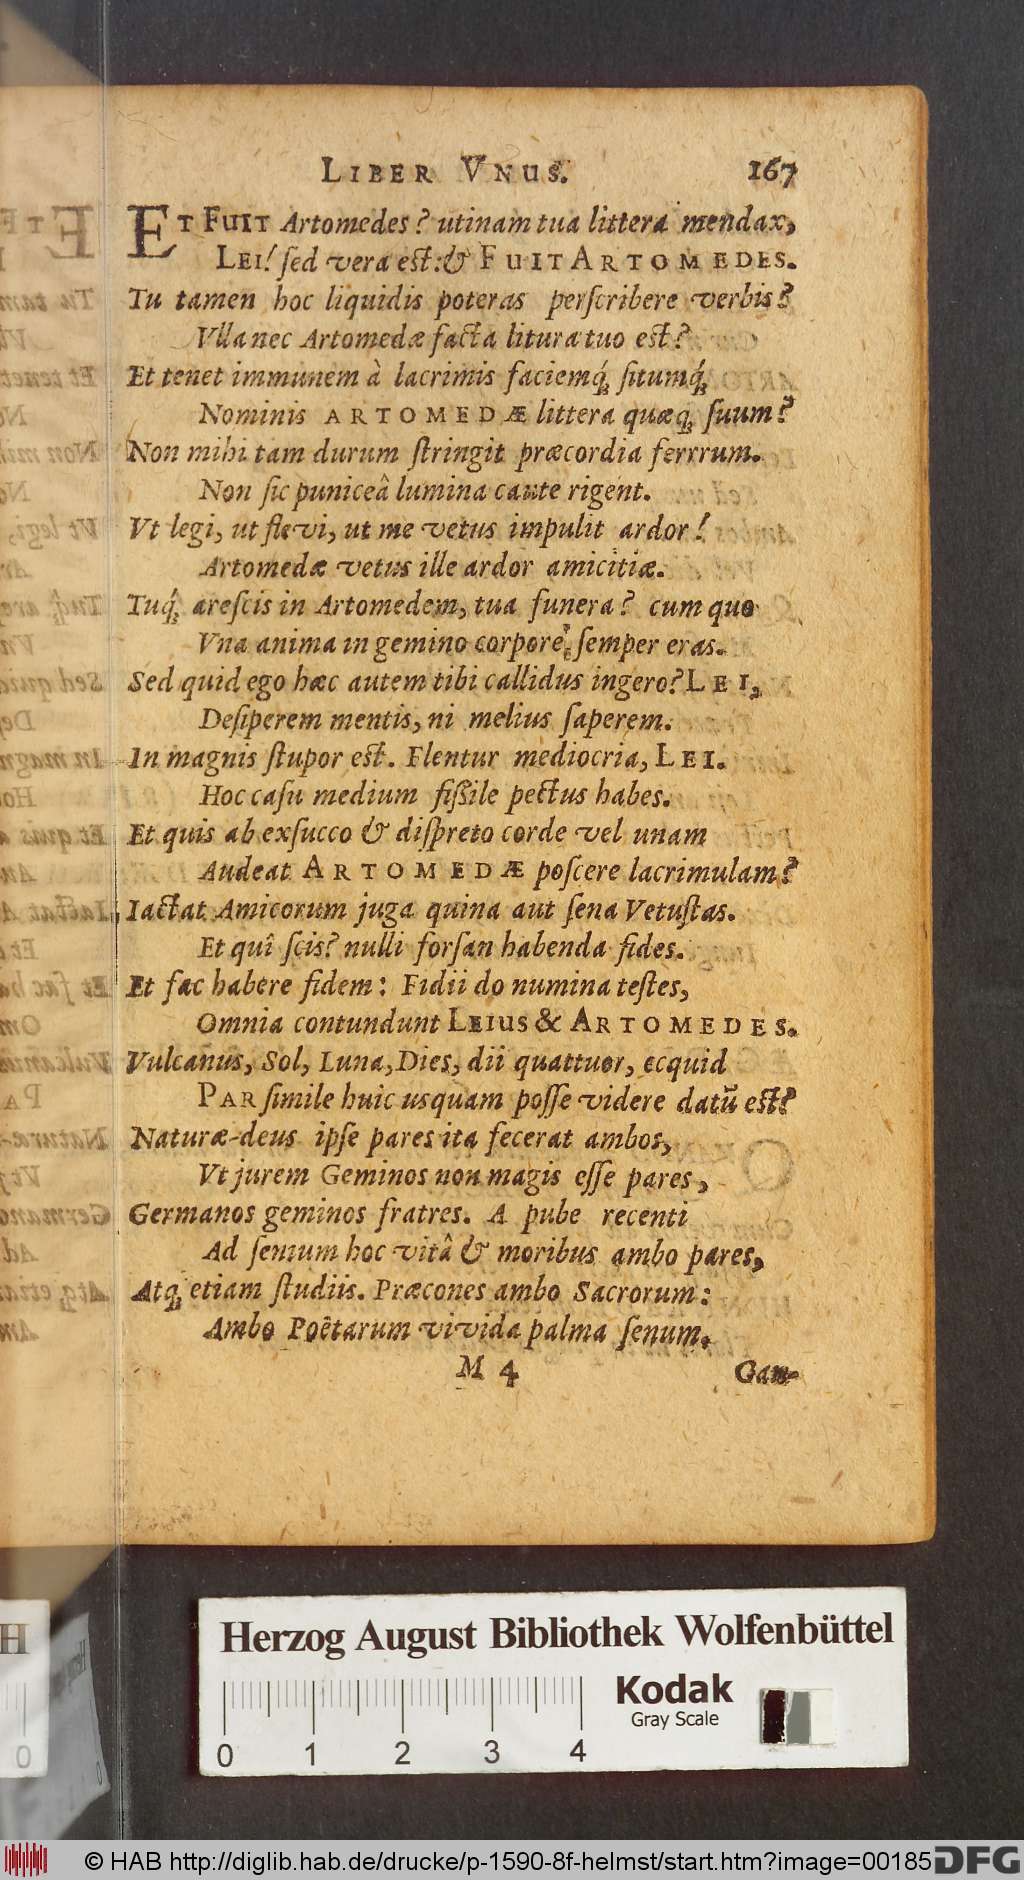 LIBER VNUS. 167
ET FUIT Artomedes? utinam tua littera mendax,
LEI! ſed vera est: & FUIT ARTOMEDES.
Tu tamen hoc liquidis poteras perſcribere verbis?
Vlla nec Artomedæ facta litura tuo est?
Et tenet immunem à lacrimis faciemq́; ſitumq́;
Nominis ARTOMEDÆ littera quæq; ſuum?
Non mihi tam durum ſtringit præcordia ferrrum.
Non ſic puniceâ lumina caute rigent.
Vt legi, ut flevi, ut me vetus impulit ardor!
Artomedæ vetus ille ardor amicitiæ.
Tuq́; areſcis in Artomedem, tua funera? cum quo
Vna anima in gemino corpore ſemper eras.
Sed quid ego hæc autem tibi callidus ingero? LEI,
Deſiperem mentis, ni melius ſaperem.
In magnis ſtupor est. Flentur mediocria, LEI.
Hoc caſu medium fiſsile pectus habes.
Et quis ab exſucco & diſpreto corde vel unam
Audeat ARTOMEDÆ poſcere lacrimulam?
Iactat Amicorum juga quina aut ſena Vetuſtas.
Et quî ſcis? nulli forſan habenda fides.
Et fac habere fidem: Fidii do numina teſtes,
Omnia contundunt LEIUS & ARTOMEDES.
Vulcanus, Sol, Luna, Dies, dii quattuor, ecquid
PAR ſimile huic usquam poſſe videre datũ est?
Naturæ-deus ipſe pares ita fecerat ambos,
Vt jurem Geminos non magis eſſe pares,
Germanos geminos fratres. A pube recenti
Ad ſenium hoc vitâ & moribus ambo pares,
Atq; etiam ſtudiis. Præcones ambo Sacrorum:
Ambo Poêtarum vivida palma ſenum.
M 4 Gan-
Herzog August Bibliothek Wolfenbüttel
Kodak
Gray Scale
0 1 2 3 4
© HAB http://diglib.hab.de/drucke/p-1590-8f-helmst/start.htm?image=00185
DFG